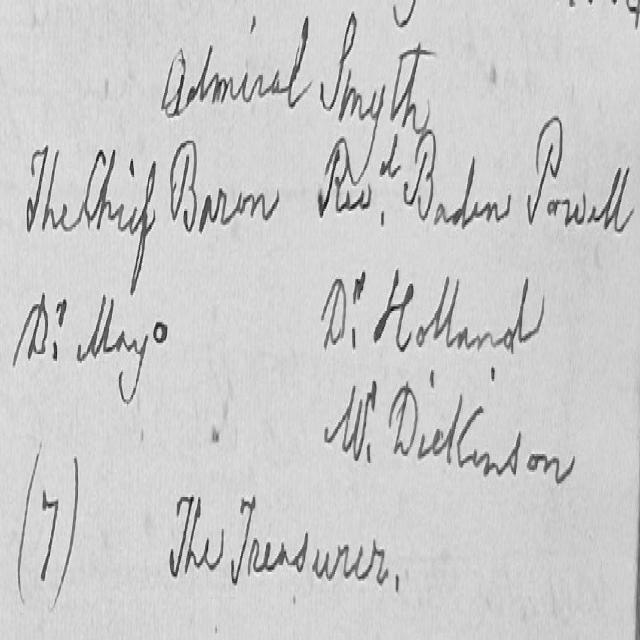 Admiral Smyth
The Chief Baron Revd. Baden Powell
Dr. Mayo Dr. Holland
Mr. Dickinson
(7) The Treasurer.